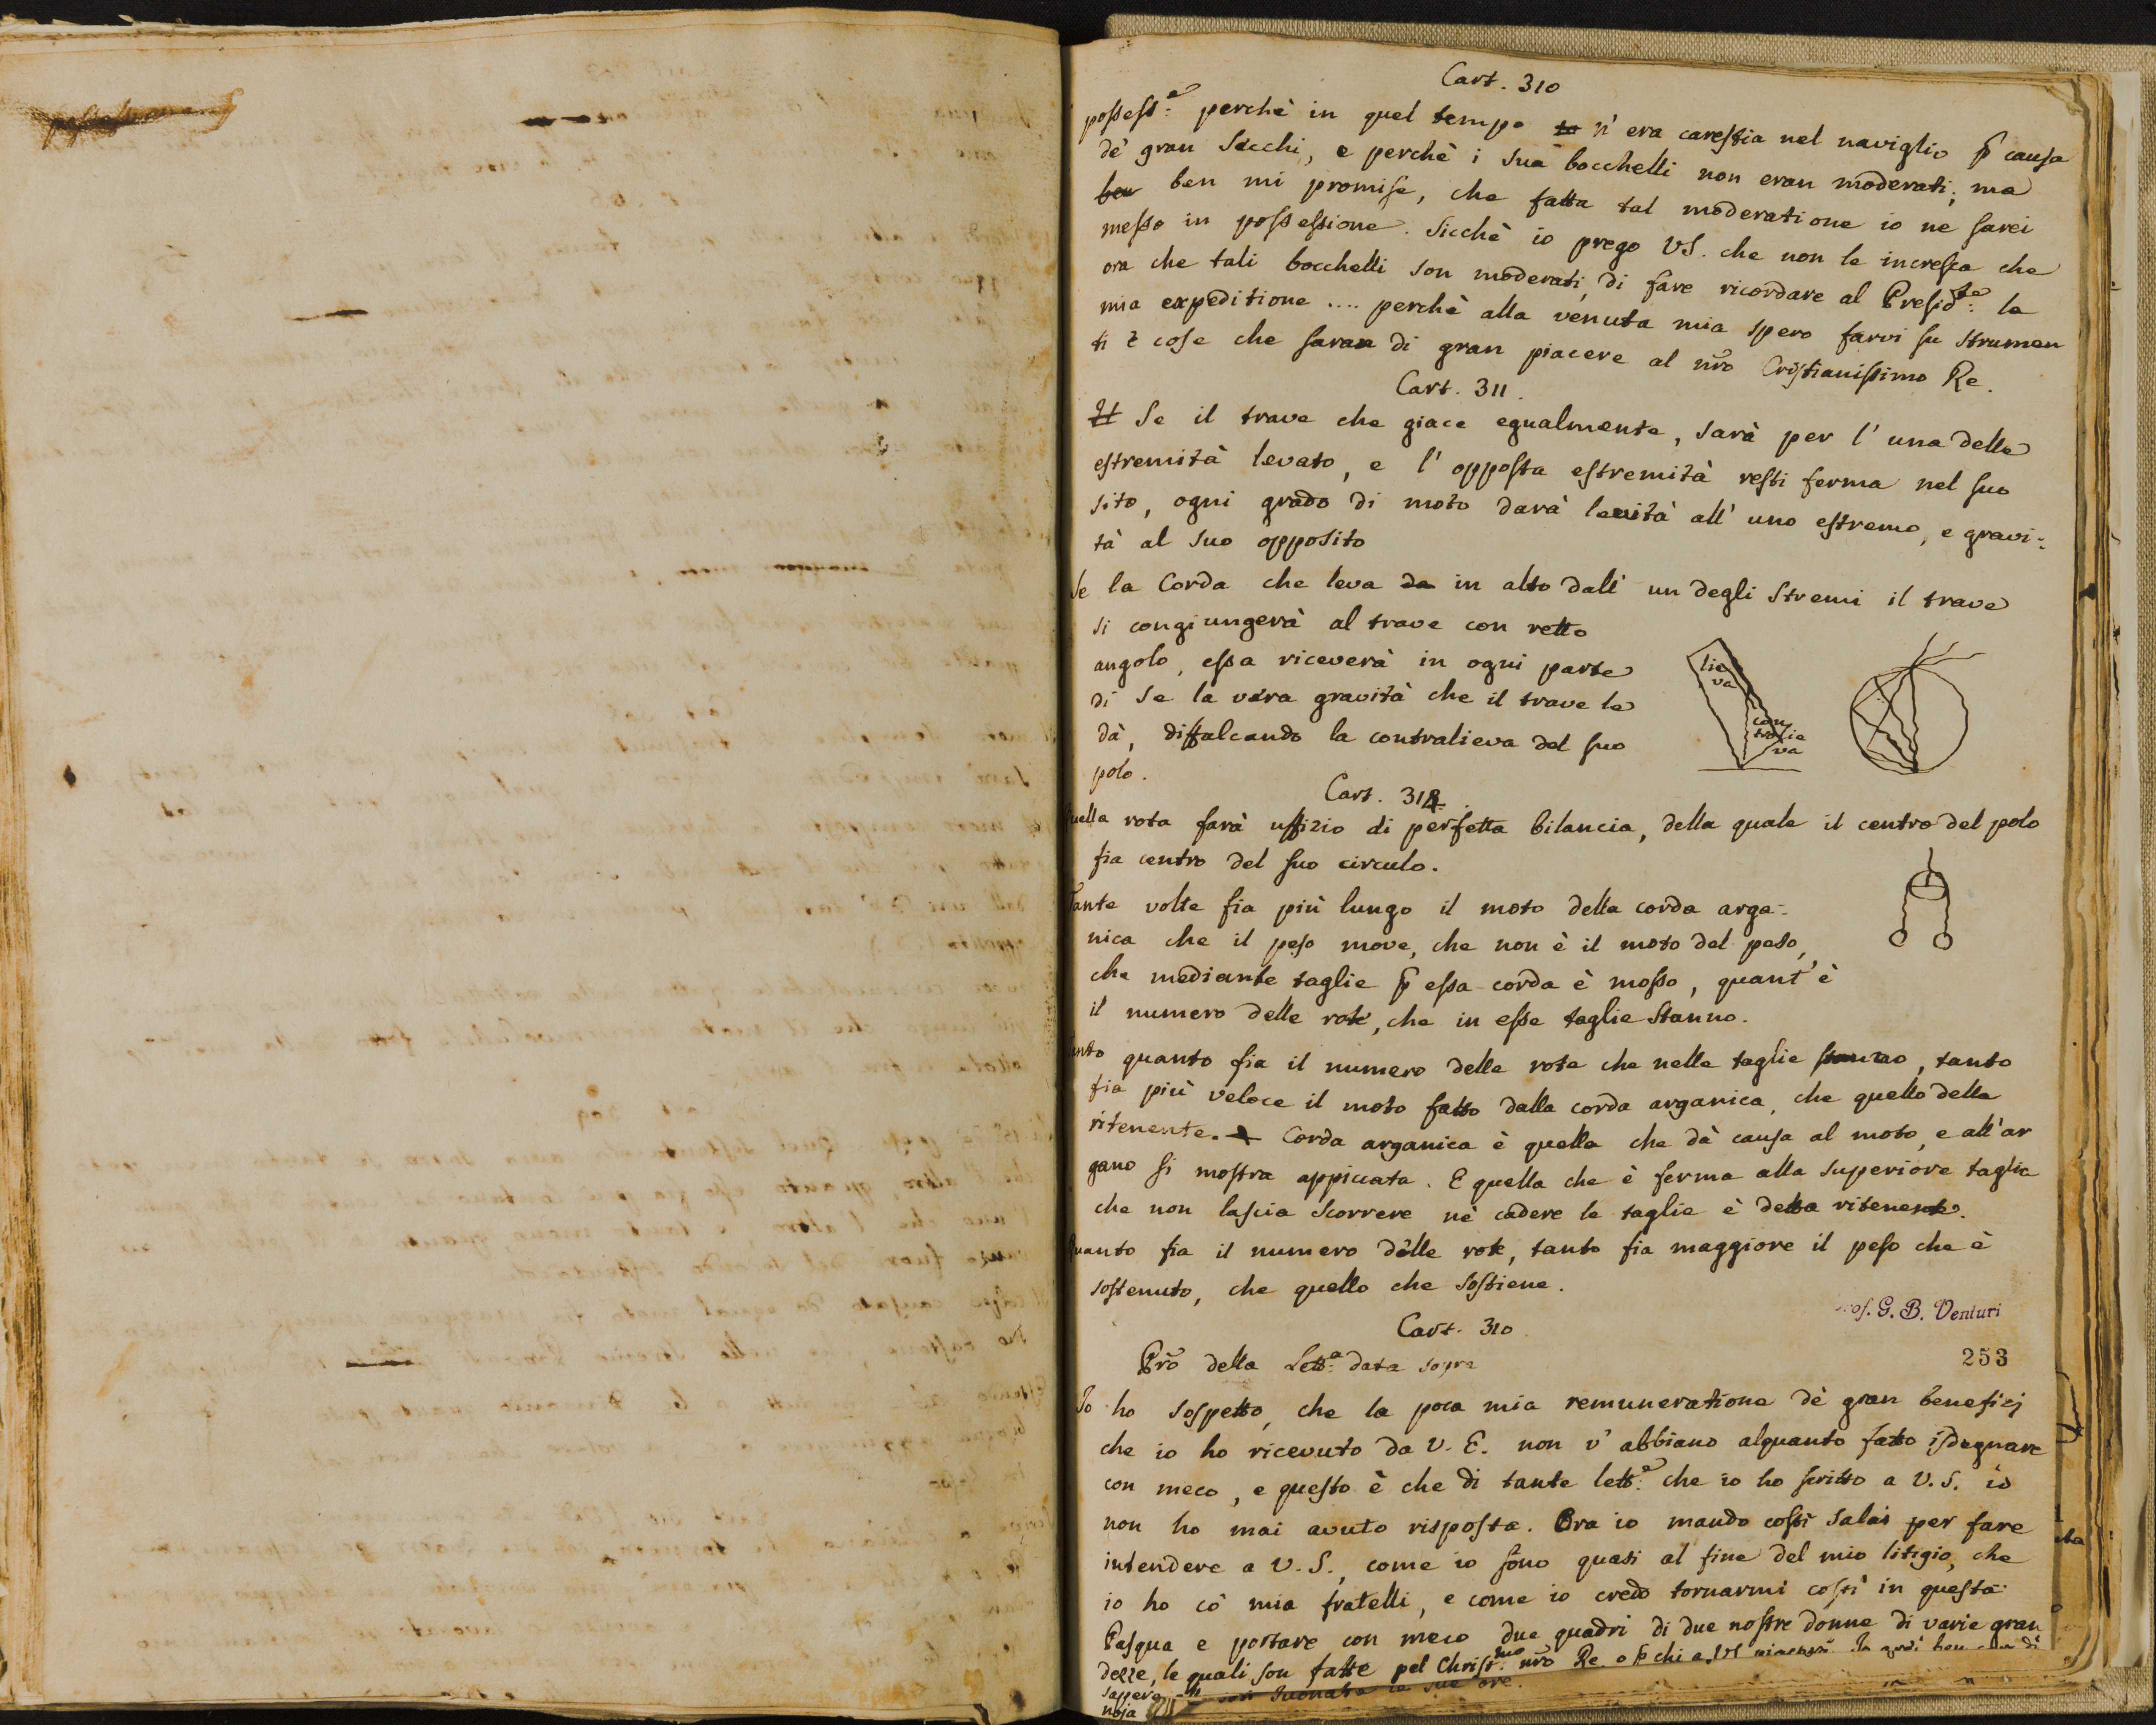 Cart. 310
possess.e perchè in quel tempo to n' era carestia nel naviglio p causa
de' gran secchi, e perchè i sua bocchelli non eran moderati; ma
ben ben mi promise, che fatta tal moderatione io ne sarei
messo in possessione. Sicchè io prego VS. che non le incresca che
ora che tali bocchelli son moderati, di fare ricordare al Presid.te la
mia expeditione .... perchè alla venuta mia spero farvi su strumen
ti e cose che saran di gran piacere al nro Cristianissimo Re.
Cart. 311.
Se il trave che giace egualmente, sarà per l' una delle
estremità levato, e l' opposta estremità resti ferma nel suo
sito, ogni grado di moto darà levità all' uno estremo, e gravi:
tà al suo opposito
Se la Corda che leva da in alto dall' un degli stremi il trave
si congiungerà al trave con retto
angolo, essa riceverà in ogni parte
di se la vera gravità che il trave le
dà, diffalcando la contralieva del suo
polo.
lie
va
con
tralie
va
Cart. 312.
Quella rota farà uffizio di perfetta bilancia, della quale il centro del polo
fia centro del suo circulo.
Tante volte fia più lungo il moto della corda arga-
nica che il peso move, che non è il moto del peso,
che mediante taglie p essa corda è mosso, quant' è
il numero delle rote, che in esse taglie stanno.
Tanto quanto fia il numero delle rote che nelle taglie stanno, tanto
fia più veloce il moto fatto dalla corda arganica, che quello della
ritenente. Corda arganica è quella che dà causa al moto, e all' ar
gano si mostra appiccata. E quella che è ferma alla superiore taglia
che non lascia scorrere nè cadere le taglie è detta ritenente.
Quanto fia il numero delle rote, tanto fia maggiore il peso che è
sostenuto, che quello che sostiene.
Prof. G. B. Venturi
Cart. 310
253
Pro della Lett.a data sopra
Io ho sospetto, che la poca mia remuneratione de' gran beneficj
che io ho ricevuto da V. E. non v' abbiano alquanto fatto isdegnare
con meco, e questo è che di tante lett.e che io ho scritto a V. S. io
non ho mai avuto risposta. Ora io mando costì Salai per fare
intendere a V. S., come io sono quasi al fine del mio litigio, che
io ho co' mia fratelli, e come io credo tornarmi costì in questa
Pasqua e portare con meco due quadri di due nostre donne di varie gran
dezze, le quali son fatte pel Christ.mo nro Re. o p chi a VS piacerà. Io avrei ben caro di
sapere
noja